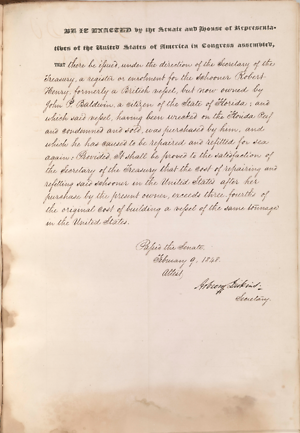 BE IT ENACTED by the Senate and House of Representa-
tives of the United States of America in Congress assembled,
THAT there be issued, under the direction of the Secretary of the
Treasury, a register or enrolment for the schooner Robert
Henry, formerly a British vessel, but now owned by
John P. Baldwin, a citizen of the State of Florida; and
which said vessel, having been wrecked on the Florida Reef
and condemned and sold, was purchased by him, and
which he has caused to be repaired and refitted for sea
again: Provided, It shall be proved to the satisfaction of
the Secretary of the Treasury that the cost of repairing and
refitting said schooner in the United States after her
purchase by the present owner, exceeds three fourths of
the original cost of building a vessel of the same tonnage
in the United States.
Passed the Senate
February 9, 1848.
Attest,
Asbury Dickins
Secretary.